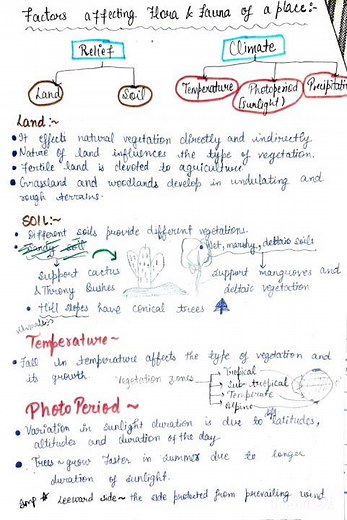 Factors affecting Flora & Fauna of a place:-
Relief
Climate
Land
Soil
Temperature
Photoperiod
(sunlight)
Precipitation
Land:~
• It effects natural vegetation directly and indirectly
• Nature of land influences the type of vegetation.
• Fertile land is devoted to agriculture
• Grassland and woodlands develop in undulating and
rough terrains.
SOIL:~
• Different soils provide different vegetations.
• Sandy soil
• Wet, marshy, deltaic soils
support cactus
& Thorny bushes
support mangroves and
deltaic vegetation
• Hill slopes have conical trees
Temperature~
• Fall in temperature affects the type of vegetation and
its growth.
vegetation zones
Tropical
Sub-tropical
Temperate
Alpine
Photo Period ~
• Variation in sunlight duration is due to latitudes,
altitudes and duration of the day.
• Trees~ grow faster in summer due to longer
duration of sunlight.
Imp * Leeward side~ the side protected from prevailing wind